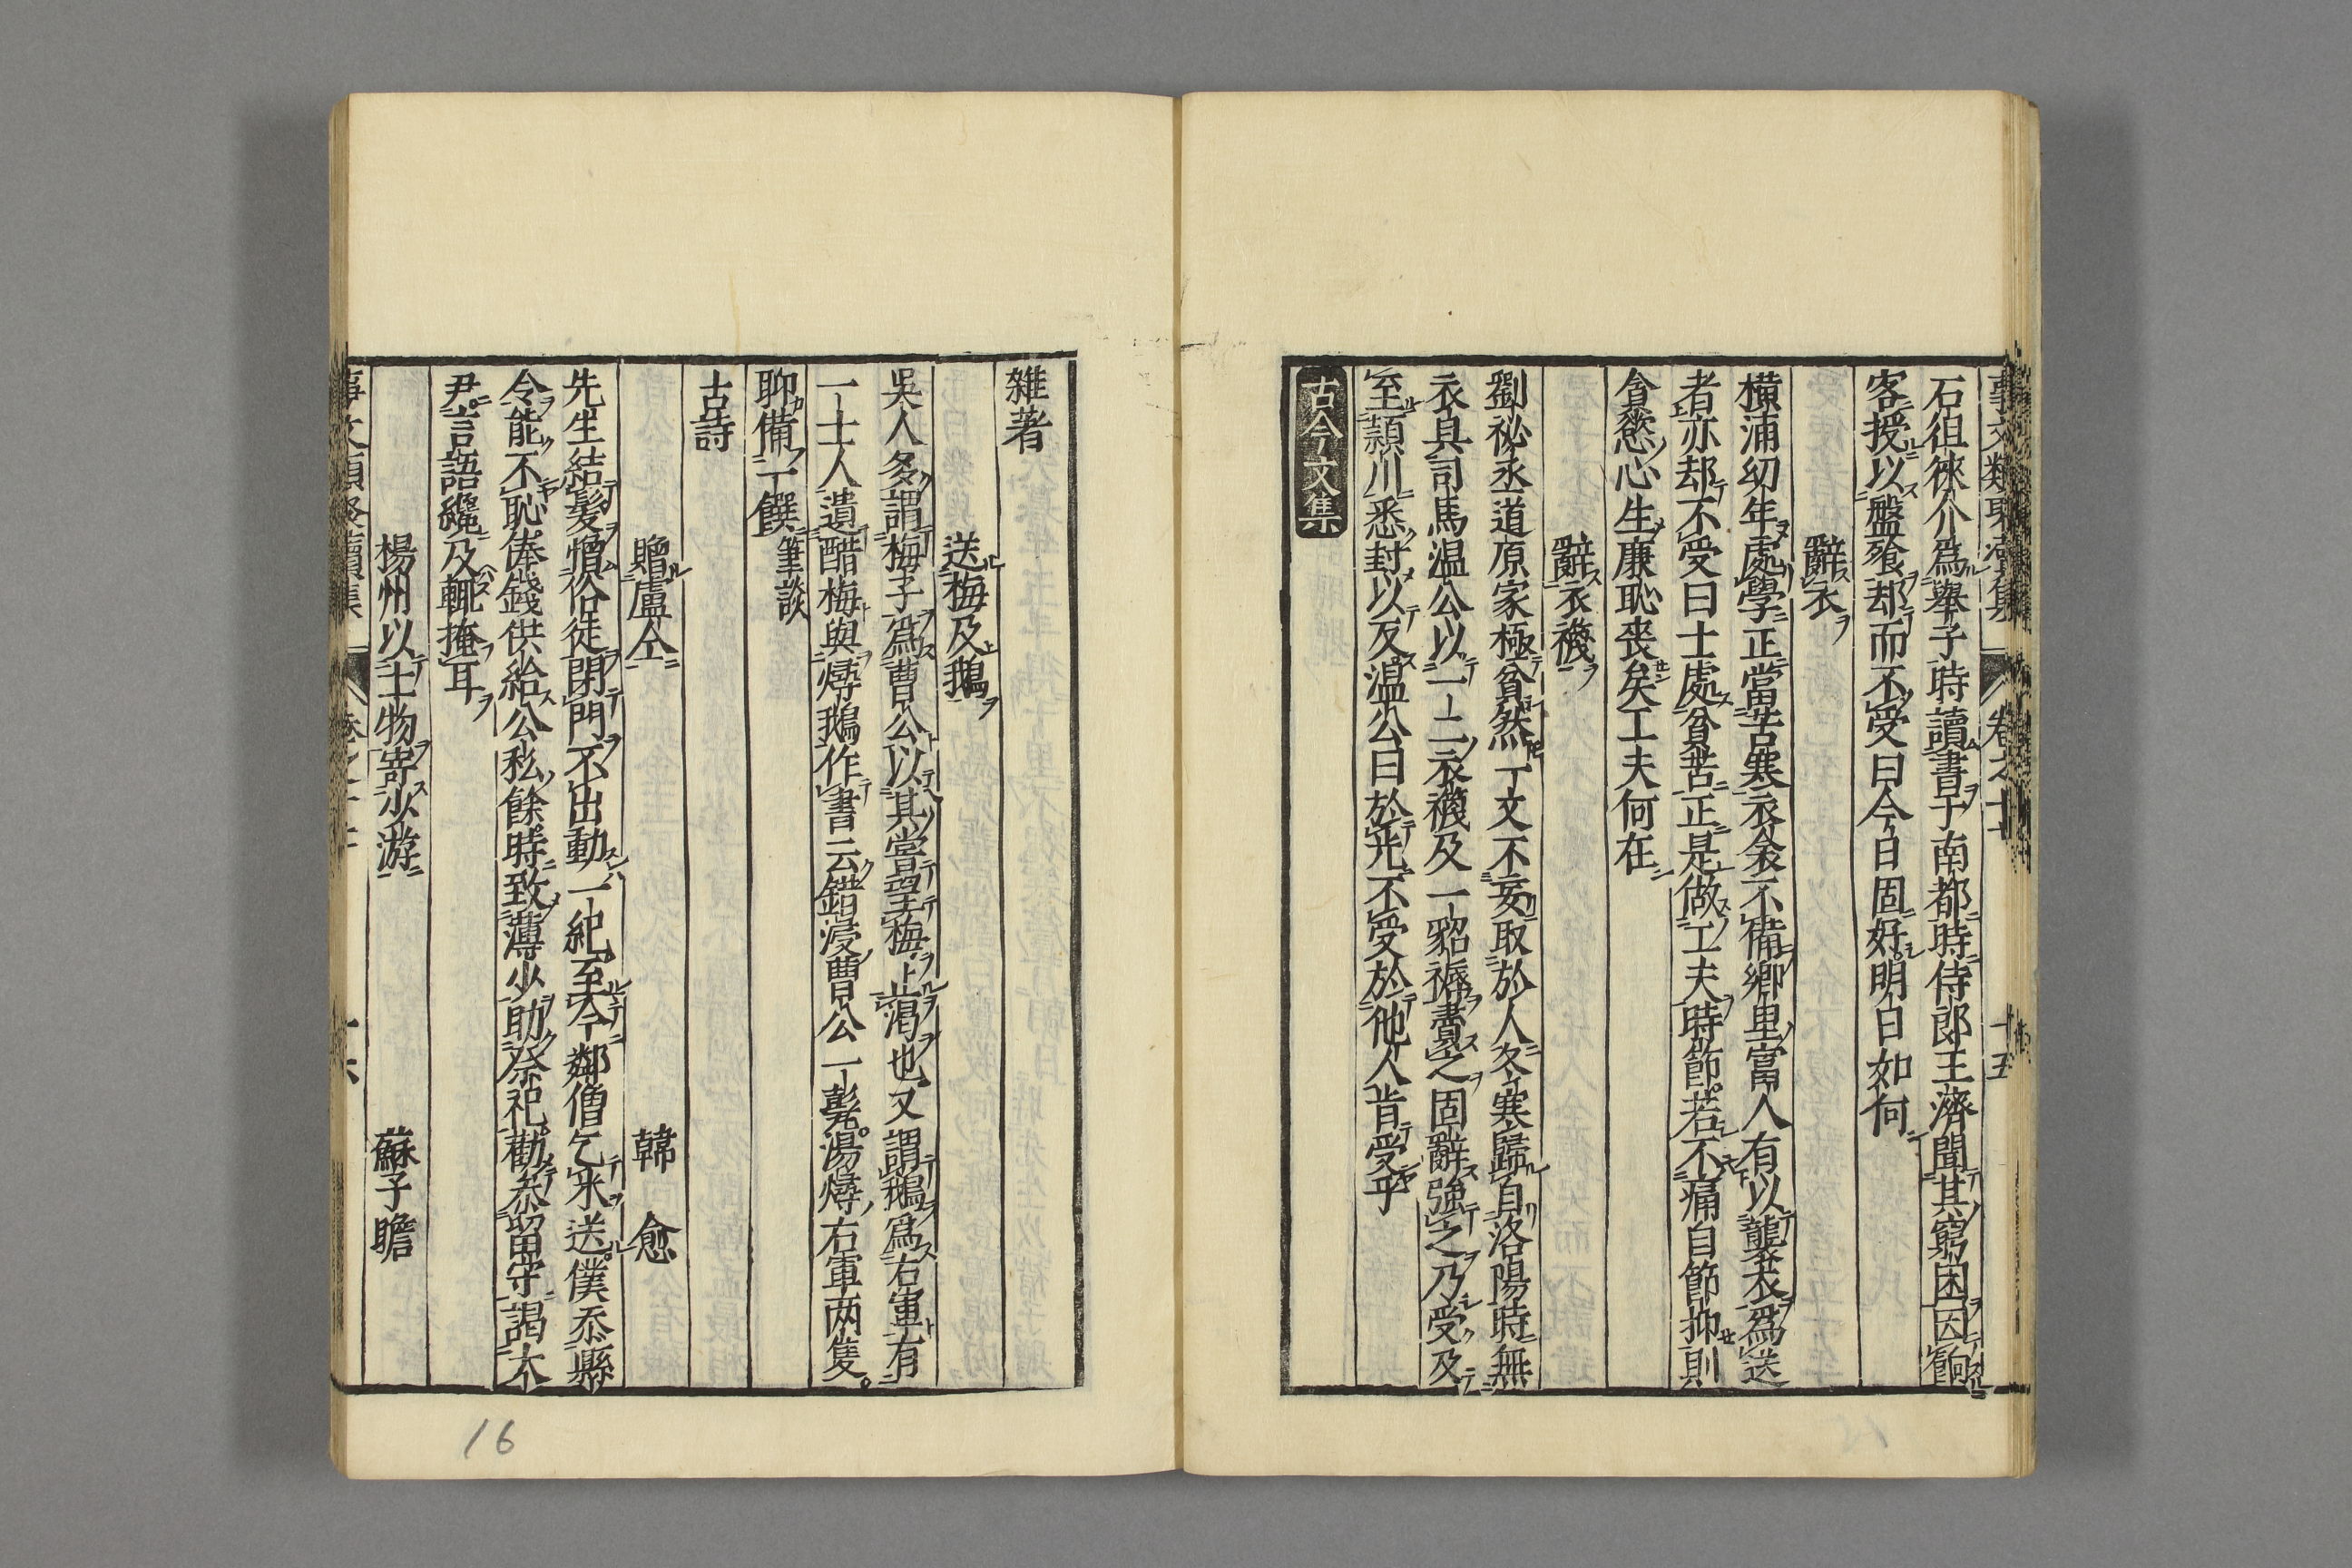 事文類聚續集 卷之十 十五
石徂徠介爲舉子時讀書于南都時侍郎王濟聞其窮困因餉
客授以盤飱却而不受曰今日固好明日如何
辭衣
橫浦幼年處學正當苦寒衣衾不備鄉里富人有以襲衣爲送
者亦却不受曰士處貧苦正是做工夫時節若不痛自節抑則
貪慾心生廉恥喪矣工夫何在
辭衣襪
劉祕丞道原家極貧然一丁文不妄取於人冬寒歸自洛陽時無
衣具司馬温公以一二衣襪及一貂褥賮之固辭強之乃受及
至潁川悉封以反温公曰於光不受於他人肯受乎
古今文集
雜著
送梅及鵝
吳人多謂梅子爲曹公以其嘗望梅止渴也又謂鵝爲右軍有
一士人遺醋梅與燖鵝作書云錯浸曹公一甏湯燖右軍两隻
聊備一饌 筆談
古詩
贈盧仝 韓愈
先生結髮憎俗徒閉門不出動一紀至今鄰僧乞米送僕忝縣
令能不恥俸錢供給公私餘時致薄少助祭祀勸參留守謁大
尹言語纔及輒掩耳
楊州以土物寄少游 蘇子瞻
事文類聚續集 卷之十 十六
16